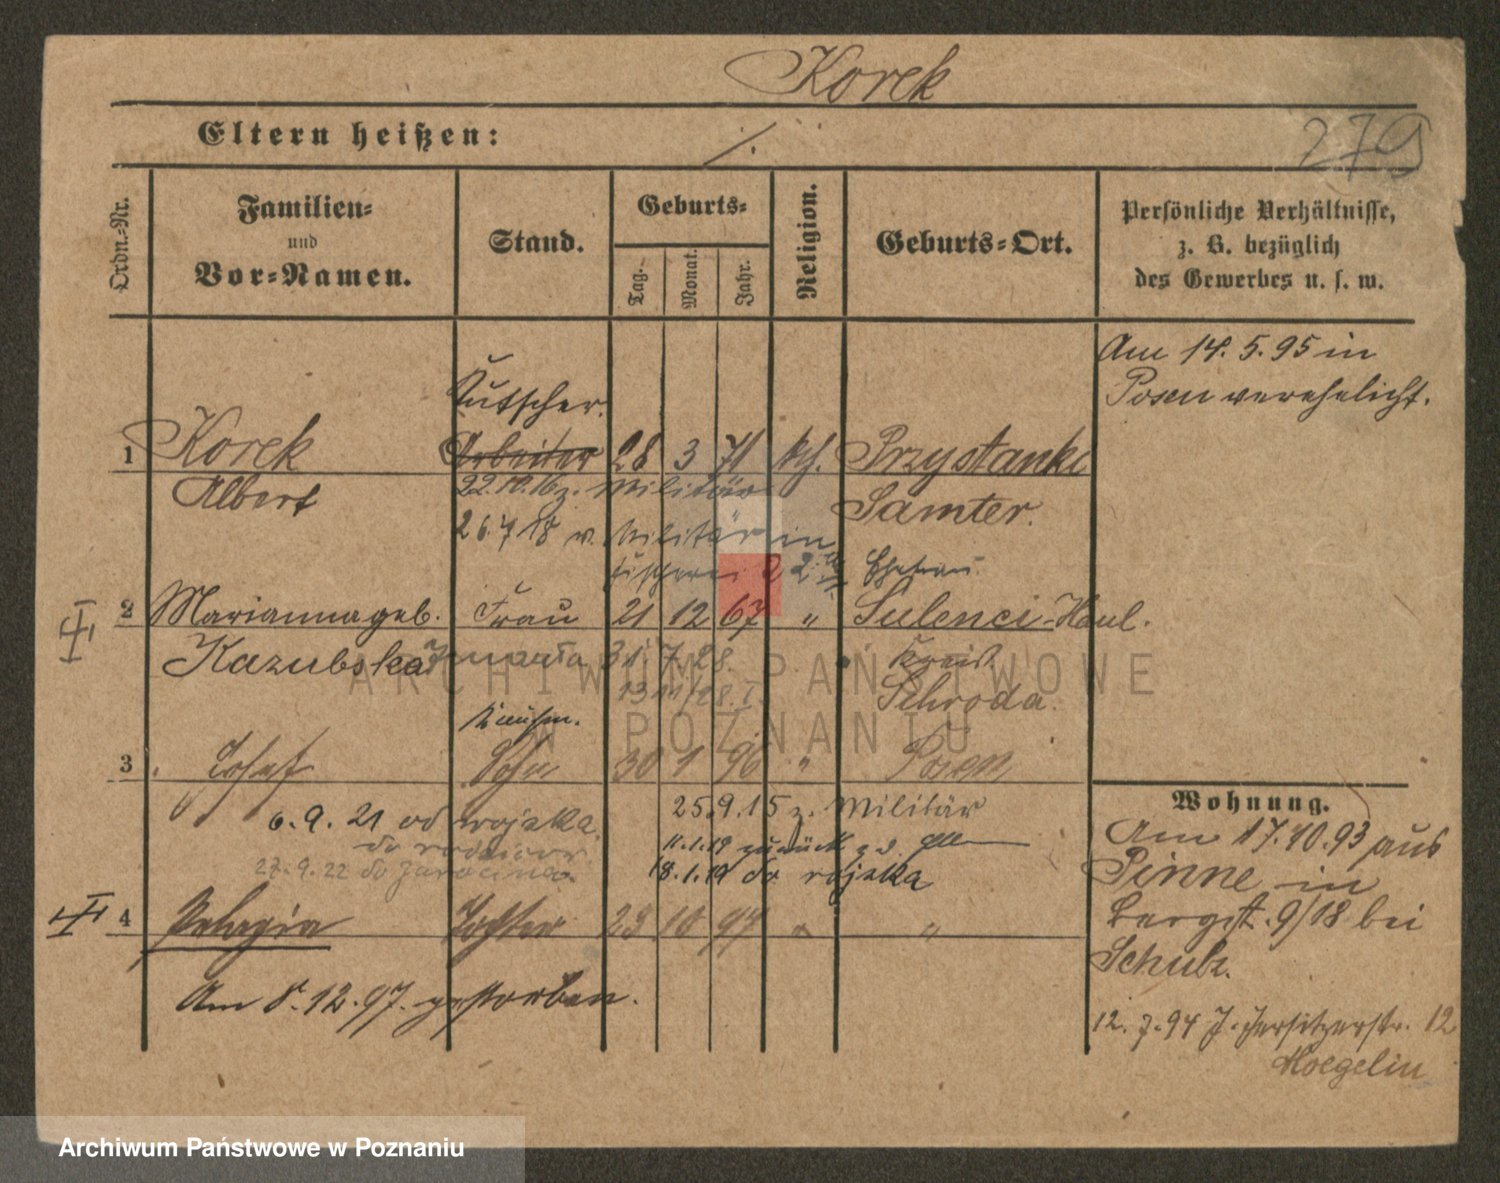 Korek
279
Eltern heißen: ./.
Ordn.-Nr.
Familien-
und
Vor-Namen.
Stand.
Geburts-
Tag.
Monat.
Jahr.
Religion.
Geburts-Ort.
Persönliche Verhältnisse,
z. B. bezüglich
des Gewerbes u. s. w.
Am 14. 5. 95 in
Posen verehelicht.
Kutscher.
1 Korek Arbeiter 28 3 71 kth. Przystanki
Albert
22.10.16 z. Militär
Samter.
26.7 18 v. Militär in
Ehefrau
2 Marianna geb. Frau 21 12 67 " Sulenci-Haul.
Kazubska zmarła 31. 7. 28.
Kreis
Schroda.
3 Josef Sohn 30 1 96 " Posen
25.9.15 z. Militär
6. 9. 21 od wojska
11.1.19 zurück
do rodziców
18.1.19 do wojska
27. 9. 22 do Jarocina
4 Pelagia Tochter 23 10 97 " "
Am 8. 12. 97. gestorben.
Wohnung.
Am 17.10.93 aus
Pinne in
Bergst. 9/18 bei
Schulz.
12. 7. 94 J. Jersitzerstr. 12
Hoegelin
ARCHIWUM PAŃSTWOWE
W POZNANIU
Archiwum Państwowe w Poznaniu